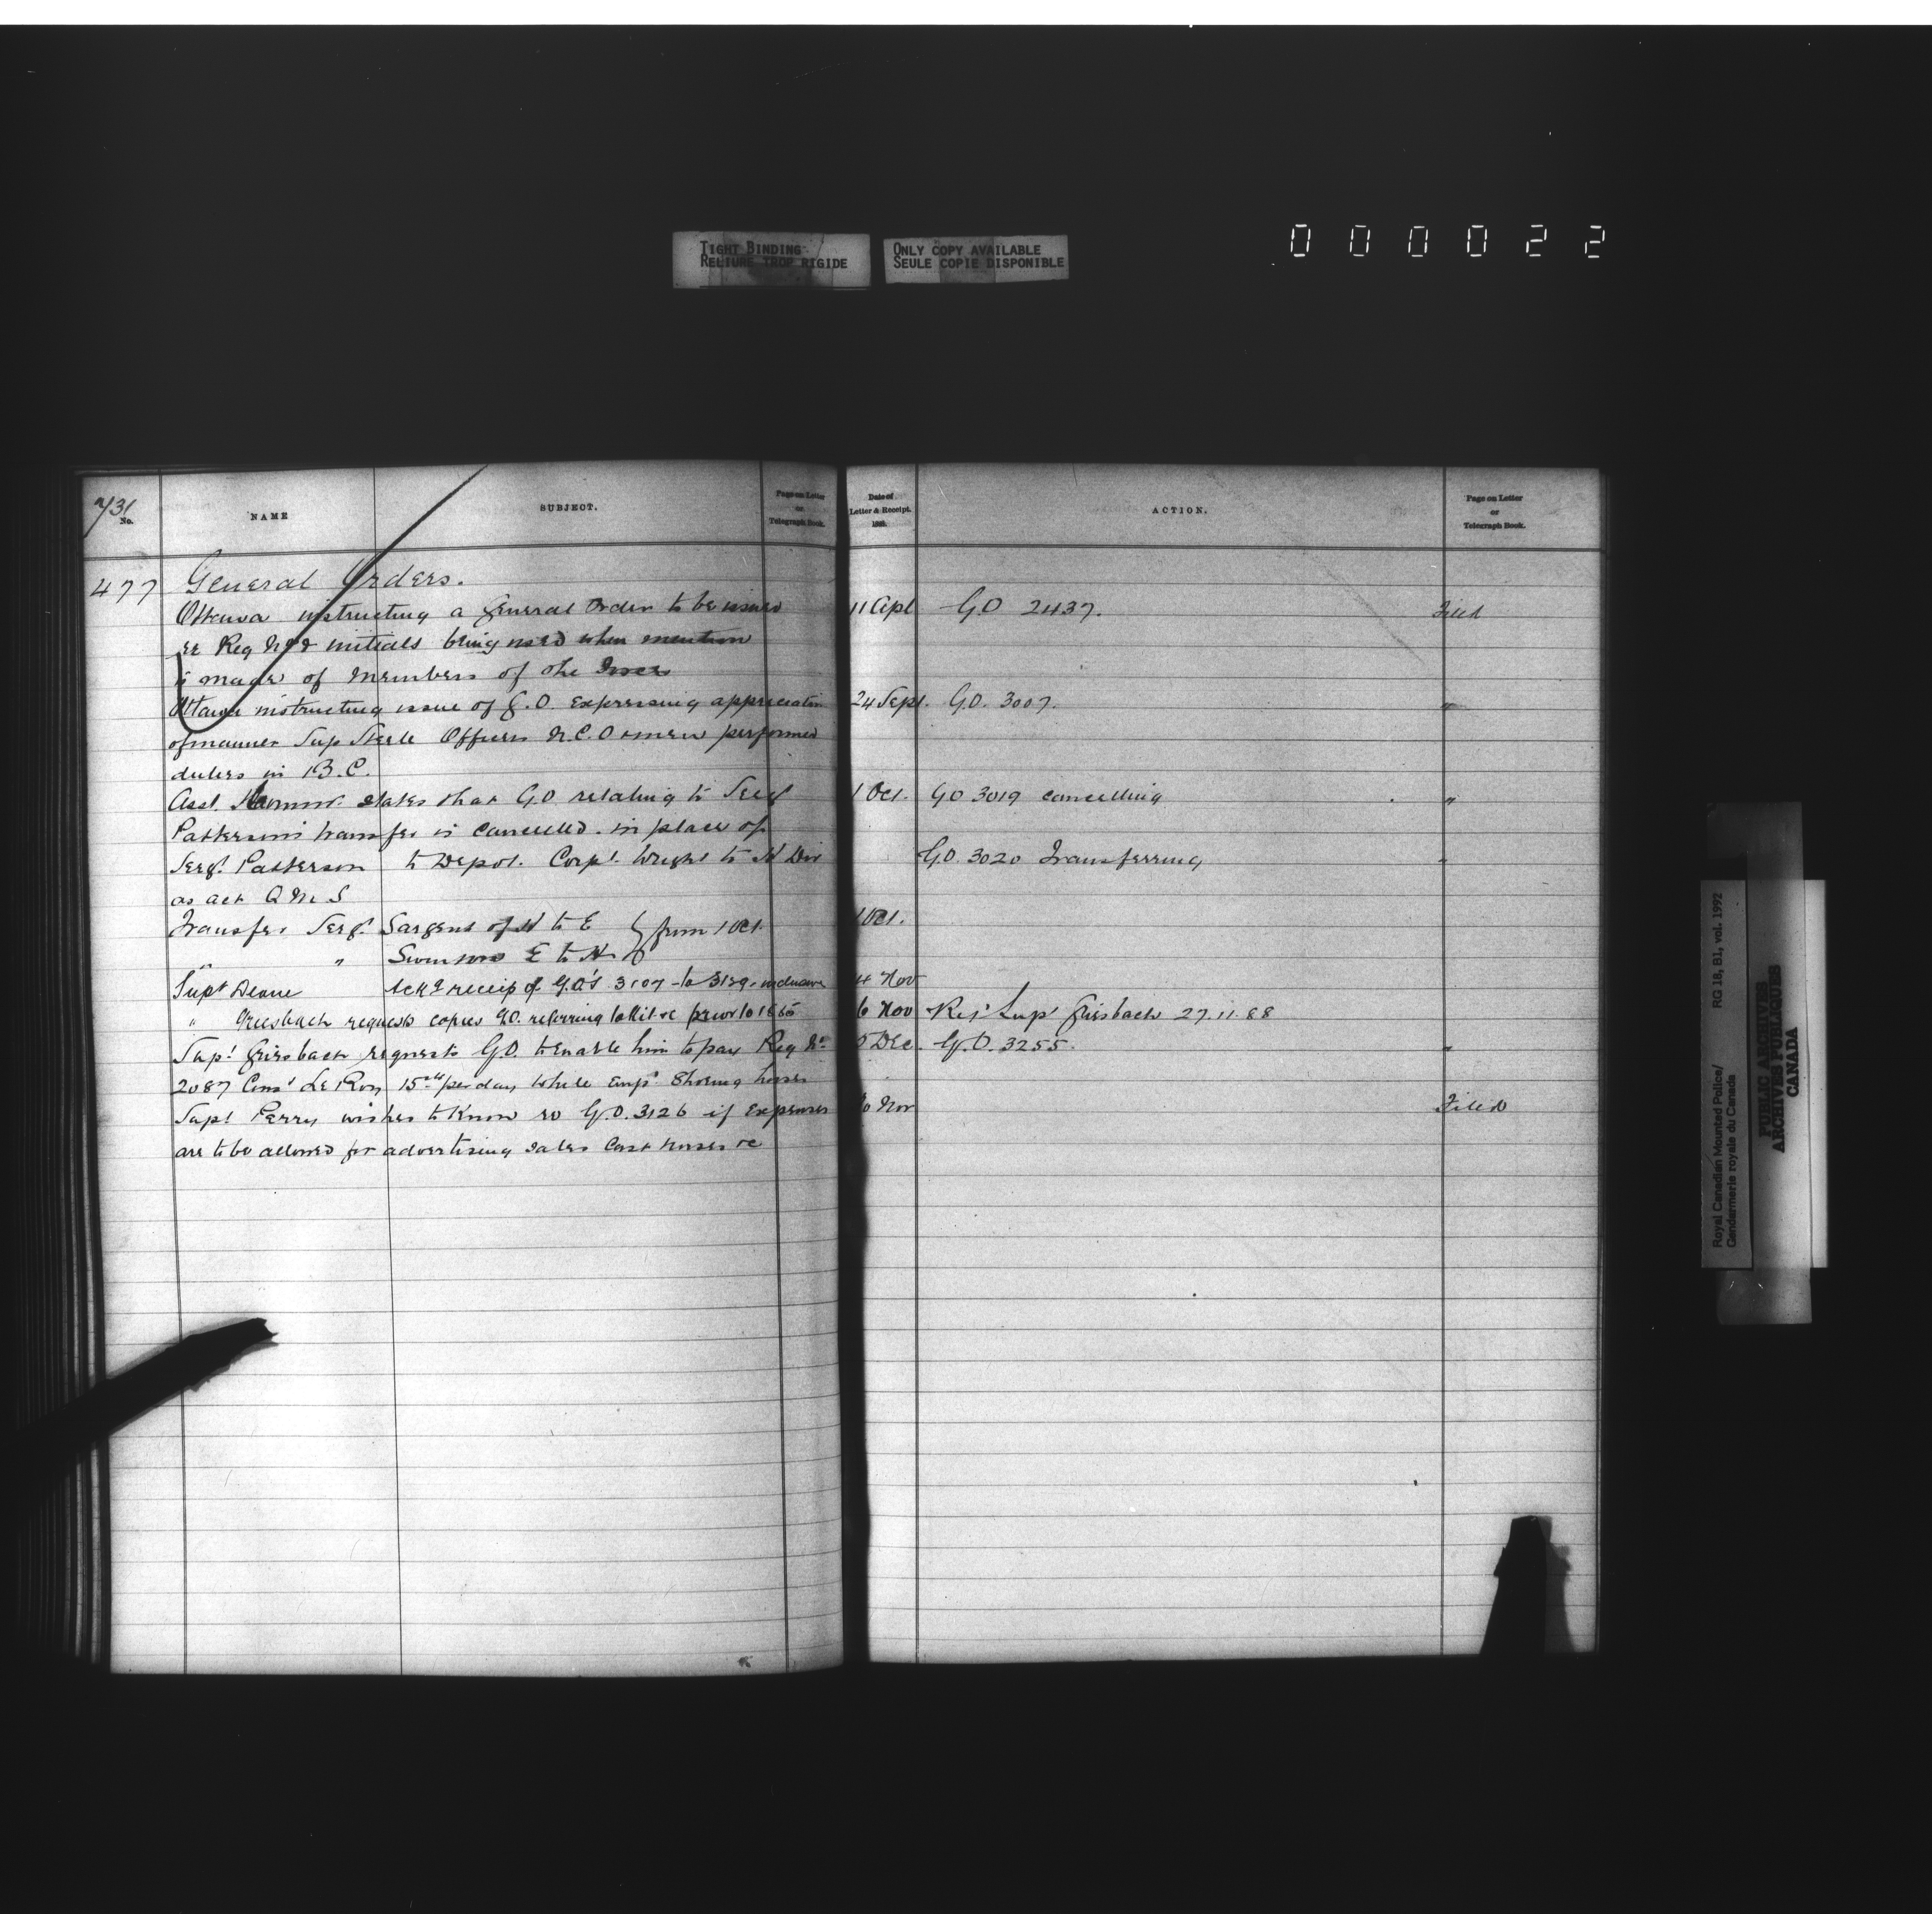 TIGHT BINDING
RELIURE TROP RIGIDE
ONLY COPY AVAILABLE
SEULE COPIE DISPONIBLE
000022
731
No.
NAME
SUBJECT.
Page on Letter
or
Telegraph Book.
Date of
Letter & Receipt.
188
ACTION.
Page on Letter
or
Telegraph Book.
477 General Orders.
Ottawa instructing a General Order to be issued 11 Apl G.O 2437. Filed
re Reg No & initials being used when mention
is made of Members of the Force
Ottawa instructing issue of G.O. Expressing appreciation 24 Sept. G.O. 3007. "
of manner Sup Steele Officers N.C.O & men performed
duties in B.C.
Asst. Commr. states that G.O relating to Sergt 1 Oct. GO 3019 cancelling "
Patterson's transfer is Cancelled. in place of
Sergt. Patterson to Depot. Corpl. Wright to H Div G.O. 3020 Transferring "
as act Q M S
Transfer Sergt. Sargent of H to E } from 1 Oct. 1 Oct.
" " Swinson E to H
Supt Deane Ackg receip of G.O's 3107 to 3129 inclusive 4 Nov
" Griesbach requests copies G.O. referring to Kit &c prior to 1886 6 Nov Supt Griesbach 27.11.88
Supt. Griesbach requests G.O. to enable him to pay Reg No. 5 Dec. G.O. 3255. "
2087 Const Le Roy 15 cts per day while Emp'd Shoeing horses
Supt Perry wishes to Know re G.O. 3126 if Expenses Nov Filed
are to be allowed for advertising sales Cast horses &c
Royal Canadian Mounted Police/
Gendarmerie royale du Canada
RG 18, B1, vol. 1992
PUBLIC ARCHIVES
ARCHIVES PUBLIQUES
CANADA